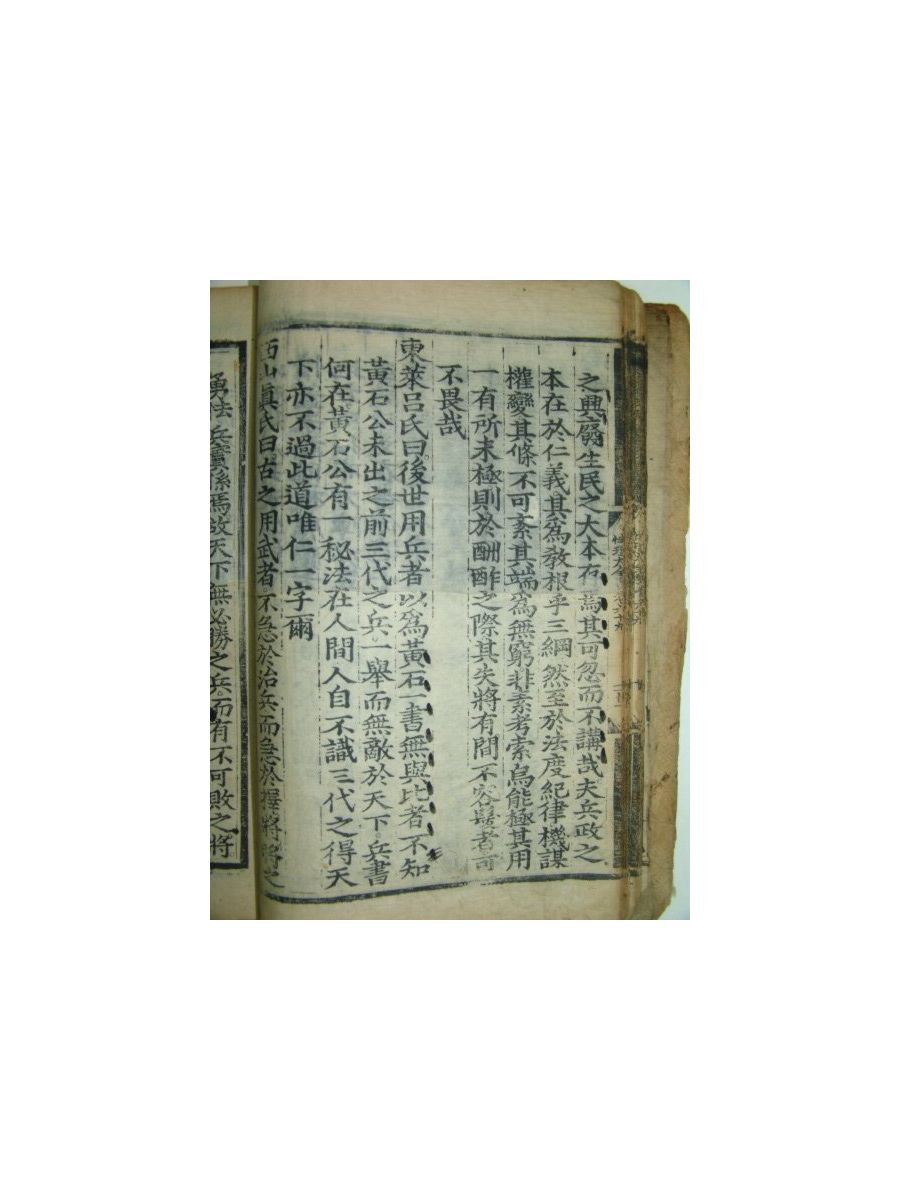 之興廢生民之大本存焉其可忽而不講哉夫兵政之
本在於仁義其爲敎根乎三綱然至於法度紀律機謀
權變其條不可紊其端爲無窮非素考索烏能極其用
一有所未極則於酬酢之際其失將有間不容髮者可
不畏哉
東萊呂氏曰後世用兵者以爲黃石一書無與比者不知
黃石公未出之前三代之兵一舉而無敵於天下兵書
何在黃石公有一秘法在人間人自不識三代之得天
下亦不過此道唯仁一字爾
西山眞氏曰古之用武者不急於治兵而急於擇將將之
勇怯兵實係焉故天下無必勝之兵而有不可敗之將
性理大全